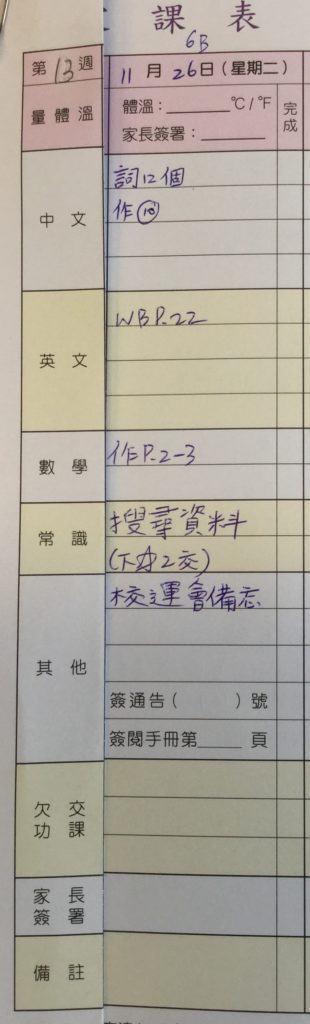 課表
6B
第13週
11月26日(星期二)
量體溫
體溫：______°C/°F
家長簽署：______
完成
中文
詞12個
作⑩
英文
WB P.22
數學
作P.2-3
常識
搜尋資料
(下交)
其他
校運會備忘
簽通告( )號
簽閱手冊第____頁
欠交功課
家長簽署
備註